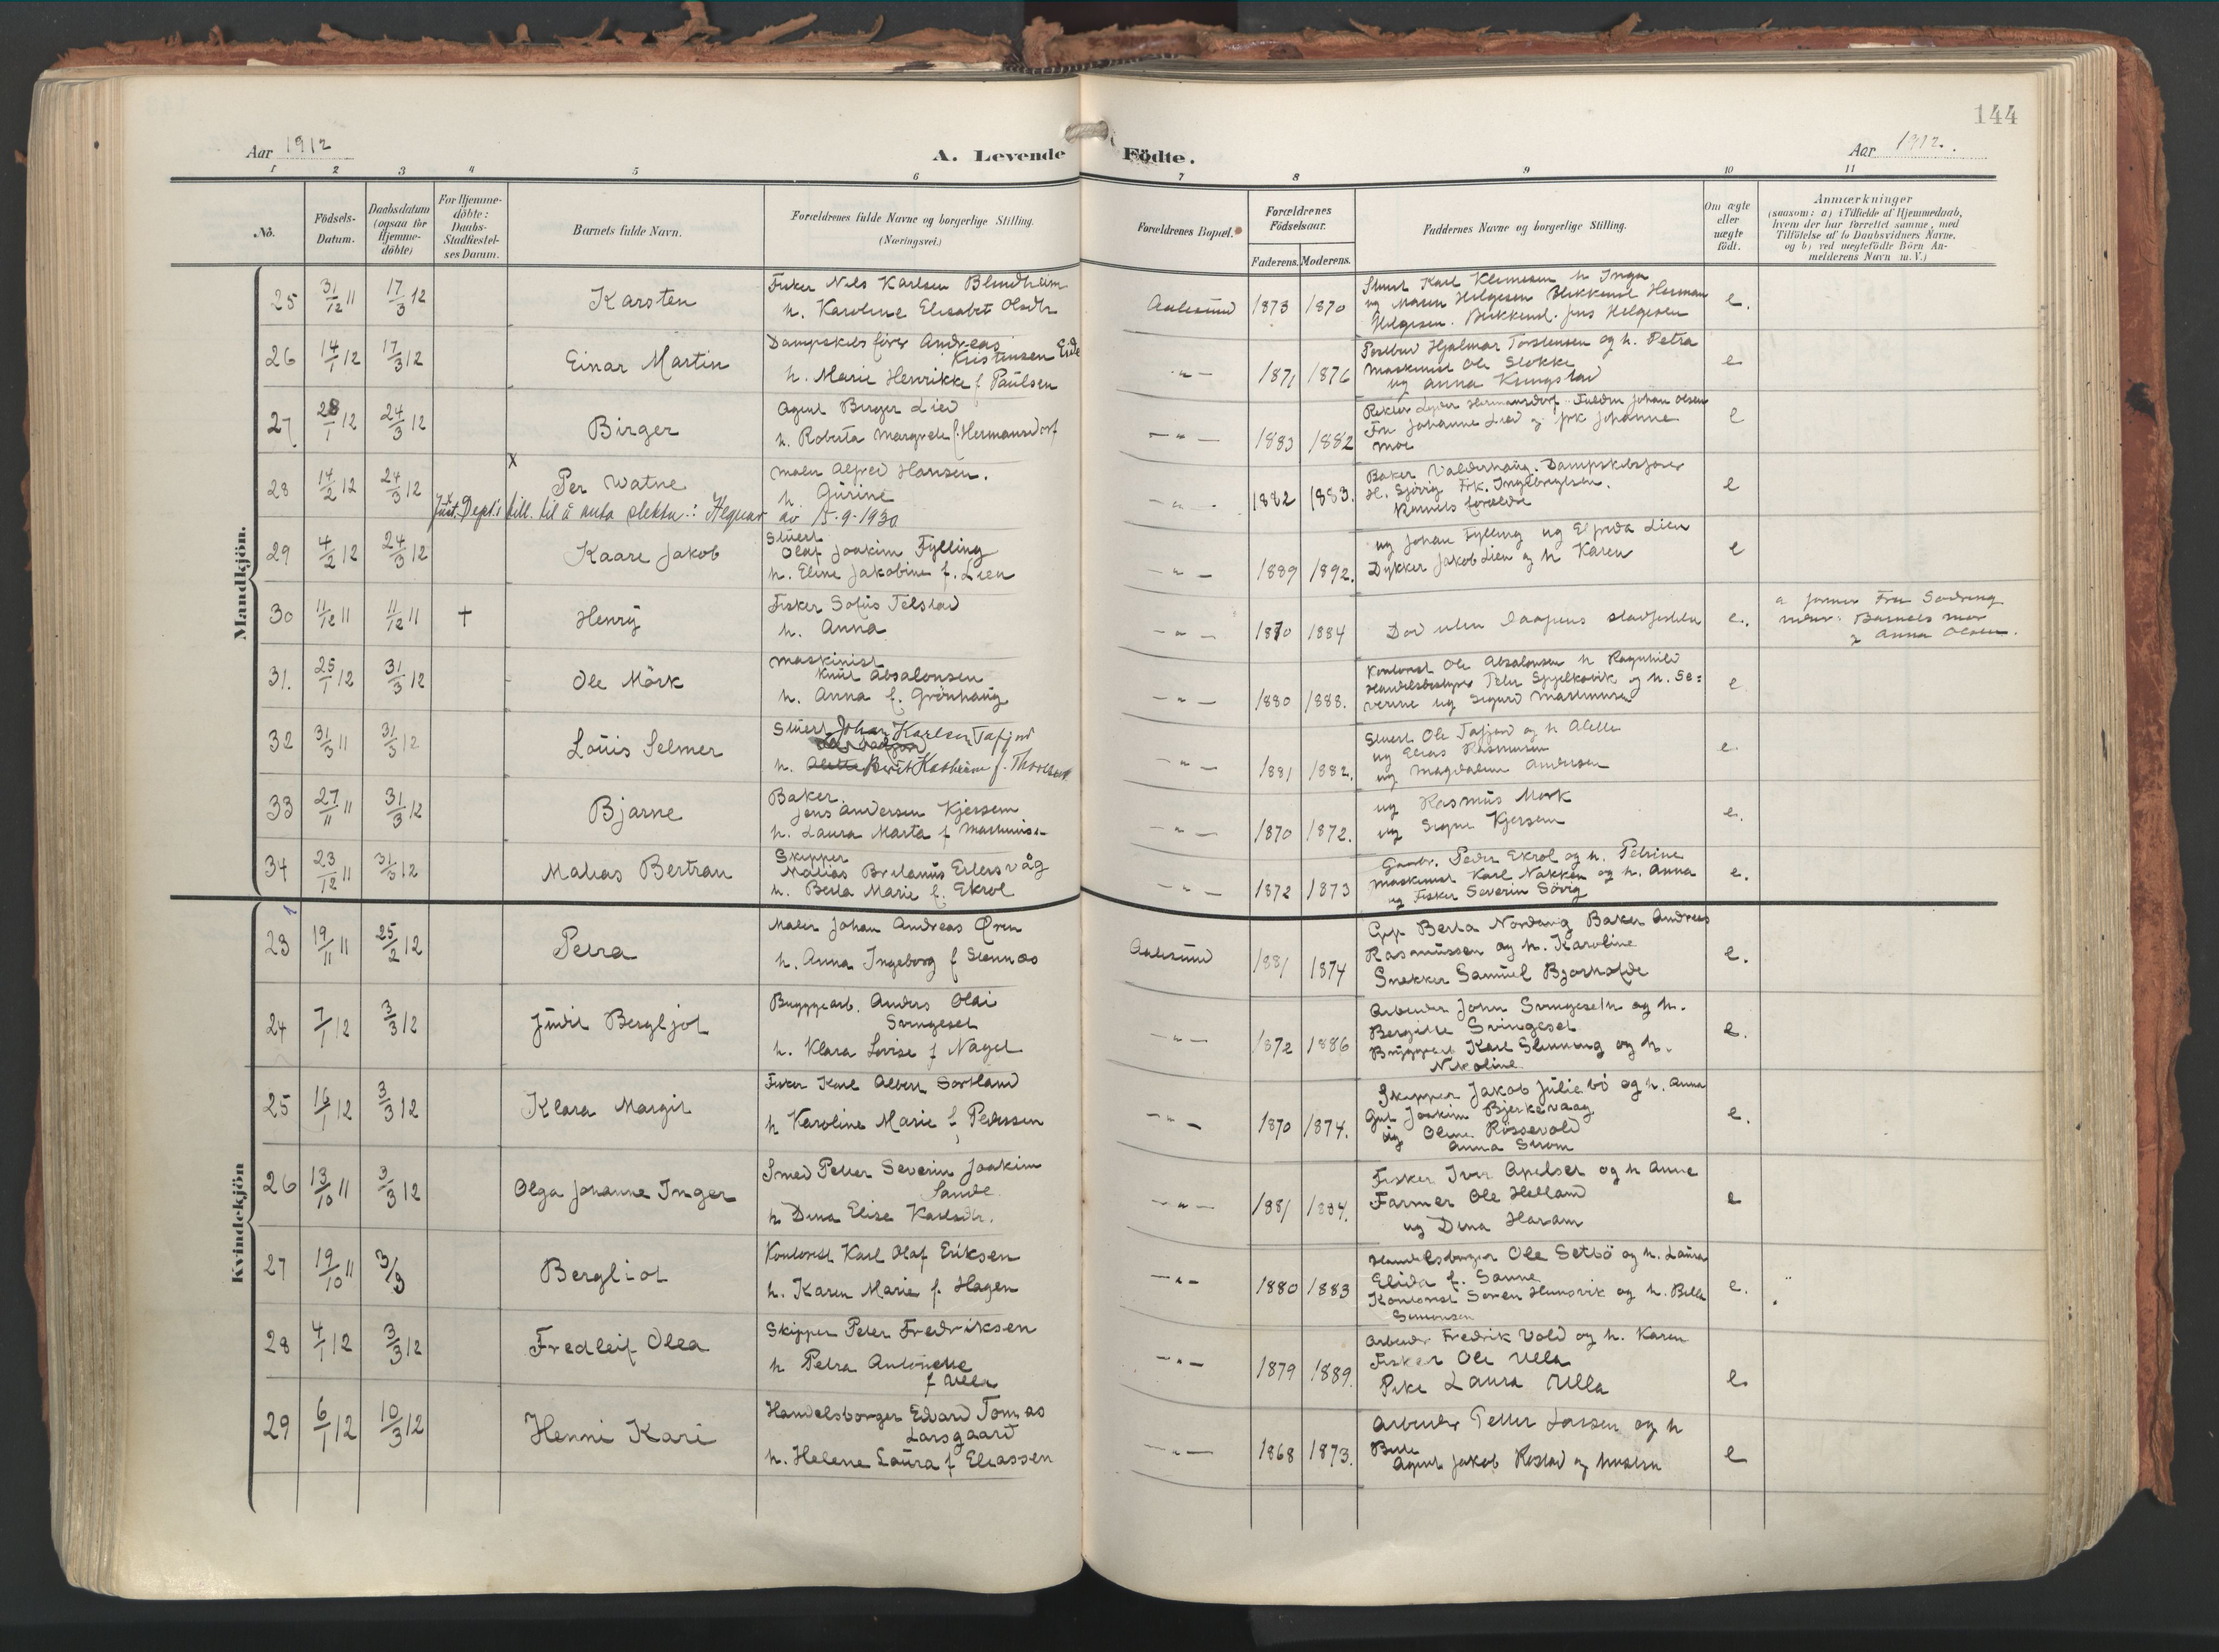 144
Aar 1912
A. Levende Födte.
Aar 1912.
1 2 3 4 5 6 7 8 9 10 11
No.
Födsels-Datum.
Daabsdatum (ogsaa for Hjemme-döbte)
For Hjemme-döbte: Daabs-Stadfæstel-ses Datum.
Barnets fulde Navn.
Forældrenes fulde Navne og borgerlige Stilling.
(Næringsvei.)
Forældrenes Bopæl.
Forældrenes Födselsaar.
Faderens. Moderens.
Faddernes Navne og borgerlige Stilling.
Om ægte eller uægte födt.
Anmærkninger
(saasom: a) i Tilfælde af Hjemmedaab,
hvem der har forrettet samme, med
Tilföielse af to Daabsvidners Navne,
og b) ved uægtefödte Börn An-
melderens Navn m. V.)
Mandkjön.
25 31/12 11 17/3 12 Karsten
Fisker Nils Karlsen Blindheim
h. Karoline Elisabet Olsdtr
Aalesund 1873 1870
Karl Klemesen h Inga
og Maren Helgesen Blikkensl Herman
Helgesen. Blikkensl. Jens Helgesen
e.
26 14/1 12 17/3 12 Einar Martin
Dampskibsförer Andreas
Kristensen Eide
h. Marie Henrikke f Paulsen
- " - 1871 1876
Postbud Hjalmar Torstensen og h. Petra
Maskinist Ole Slokke
ug Anna Kongstad
e
27 28/1 12 24/3 12 Birger
Agent Birger Lied
h. Roberta Margrete f. Hermansdorf
- " - 1883 1882
Hermansdorf Johan Olsen
Fru Johanne Lied og frk Johanne
Moe
e
28 14/2 12 24/3 12 x Per Watne
Maler Alfred Hansen.
h. Gurine
- " - 1882 1883.
Baker Valderhaug. Dampskibsförer
H. Sjövig Frk. Ingebrigtsen.
Barnets forældre
e
Just. Dept.s till. til å anta slektn.: Alquar av 15-9-1930
29 4/2 12 24/3 12 Kaare Jakob
Stuert
Olaf Joakim Fylling
h. Eline Jakobine f. Lien
- " - 1889 1892.
ug Johan Fylling ug Elfrida Lien
Dykker Jakob Lien og h Karen
e
30 11/12 11 11/12 11 + Henry
Fisker Sofus Telstad
h. Anna
- " - 1870 1884
Död uten daapens stadfestelse
e.
a jormor Fru Sodring
vidner: Barnets mor
og Anna Olsen.
31. 25/1 12 31/3 12 Ole Mörk
Maskinist
Knut Absalonsen
h. Anna f. Grönhaug
- " - 1880 1888.
Kontorist Ole Absalonsen h Ragnhild
Handelsbestyrer Peter Spjelkavik og h. Se=
verine ug Sigurd Martinusen
e
32 31/3 11 31/3 12 Louis Selmer
Stuert Johan Karlsen Tafjord
h. Berit Kathrine f. Thoresen
- " - 1881 1882.
Stuert Ole Tafjord og h Alette
ug Elias Rasmusen
ug Magdalen Andersen
e.
33 27/11 11 31/3 12 Bjarne
Baker
Jens Andersen Kjersem
h. Laura Marta f Martinusen
- " - 1870 1872.
ug Rasmus Mork
ug Signe Kjersem
e.
34 23/12 11 31/3 12 Matias Bertran
Skipper
Matias Bertanus Eilertsvåg
h. Berta Marie f. Ekrol
- " - 1872 1873
Gaardbr. Peder Ekrol og h. Petrine
Maskinist Karl Nakken og h. Anna
ug Fisker Severin Sövig
e.
Kvindekjön
23 19/11 11 25/2 12 Petra
Maler Johan Andreas Øren
h. Anna Ingeborg f Stennes
Aalesund 1881 1874
Berta Nordang Baker Andreas
Rasmussen og h. Karoline
Snekker Samuel Bjørhofde
e.
24 7/1 12 3/3 12 Judit Bergljot
Bryggearb. Anders Olai
Svingeset
h. Klara Lovise f Nagel
- " - 1872 1886
Arbeider John Svingeseth og h.
Bergitte Svingeset
Bryggearb Karl Slinning og h.
Nikoline
e.
25 16/1 12 3/3 12 Klara Margit
Fisker Karl Albert Sortland
h Karoline Marie f Pedersen
- " - 1870 1874.
Skipper Jakob Juliebö og h. Anna
Gut Joakim Bjerkevaag
ug Oline Rössevold
Anna Strom
e.
26 13/10 11 3/3 12 Olga Johanne Inger
Smed Petter Severin Joakim
Sande
h Dina Elise Karlsdtr.
- " - 1881 1884.
Fisker Iver Apelset og h Anne
Farmer Ole Helland
ug Dina Haram
e
27 19/10 11 3/3 Bergliot
Kontorist Karl Olaf Eriksen
h. Karen Marie f. Hagen
- " - 1880 1883
Handelsborger Ole Setbö og h. Laura
Elida f. Sanne
Kontorist Soren Hunsvik og h. Bella
Simonsen
e.
28 4/1 12 3/3 12 Fredleif Olea
Skipper Peter Fredriksen
h Petra Antonette
f Ulla
- " - 1879 1889.
Arbeider Fredrik Vold og h. Karen
Fisker Ole Ulla
Pike Laura Ulla
e
29 6/1 12 10/3 12 Henni Kari
Handelsborger Edvard Tomas
Larsgaard
h. Helene Laura f Eliassen
- " - 1868 1873.
Arbeider Petter Larsen og h
Berte
Agent Jakob Rostad og hustru
e